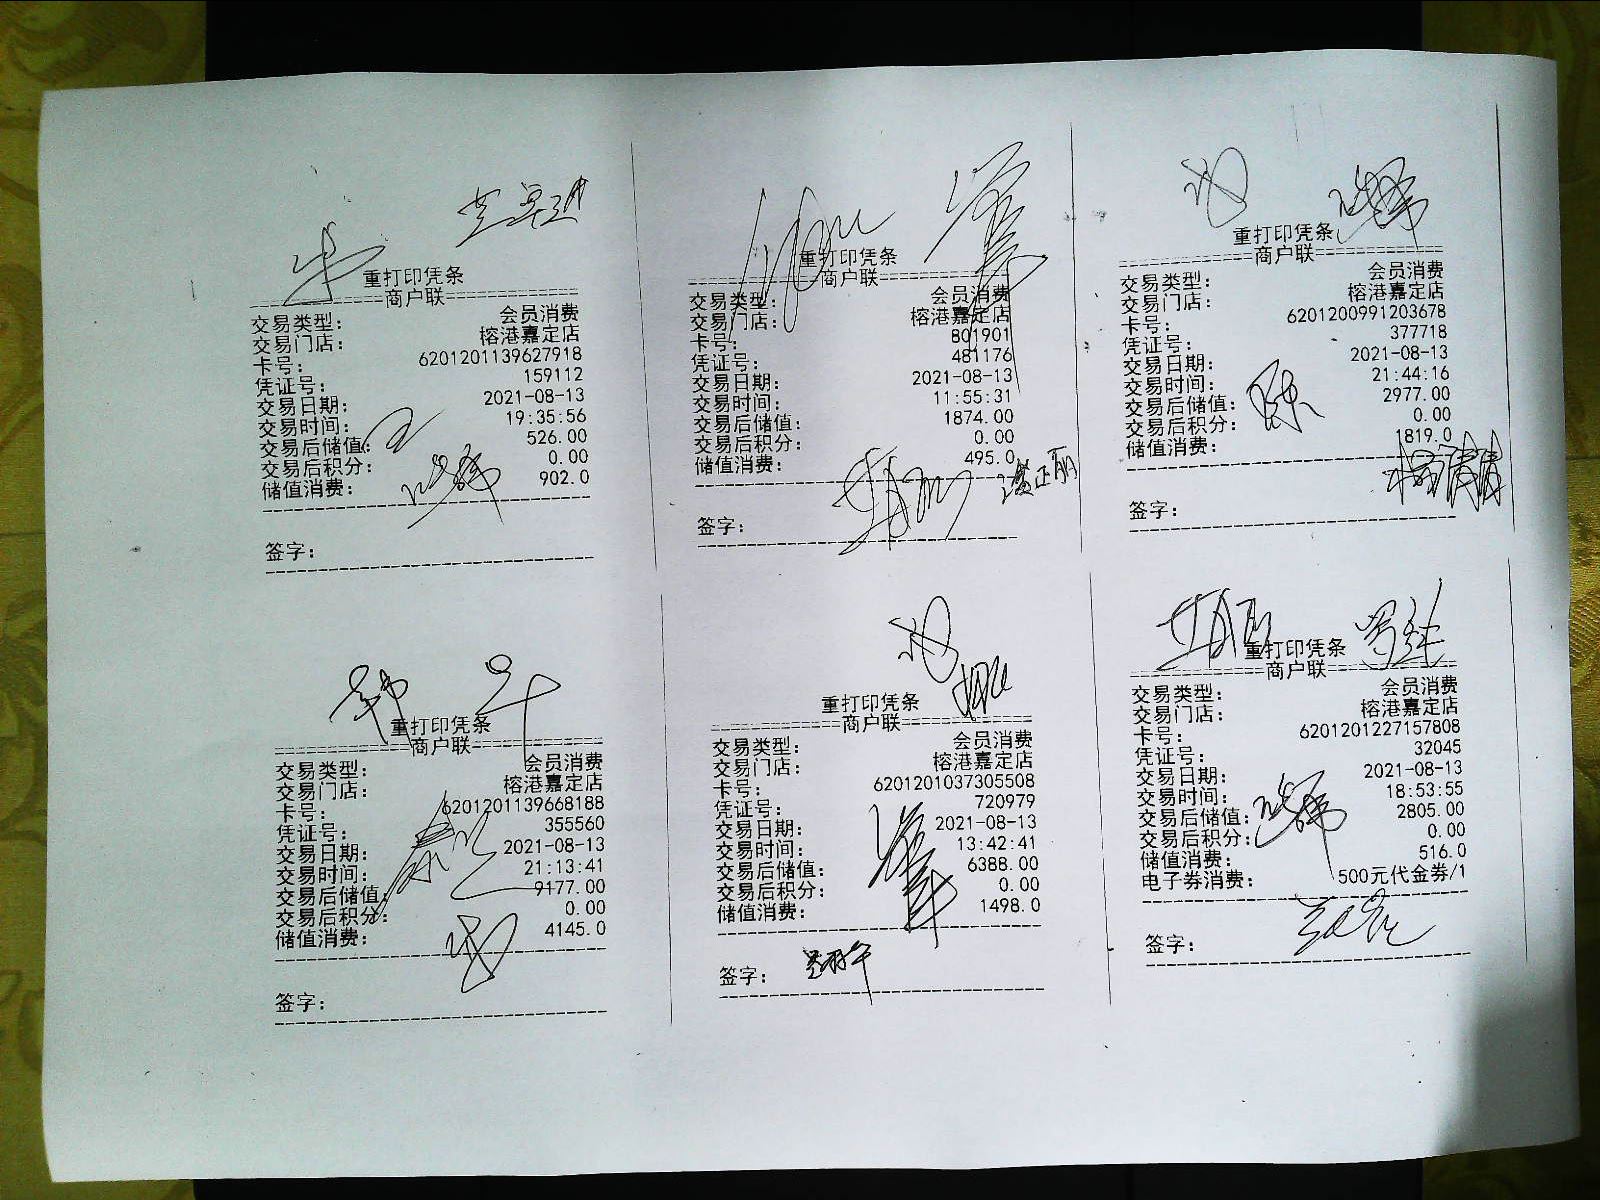 重打印凭条
商户联
交易类型: 会员消费
交易门店: 榕港嘉定店
卡号: 6201201139627918
凭证号: 159112
交易日期: 2021-08-13
交易时间: 19:35:56
交易后储值: 526.00
交易后积分: 0.00
储值消费: 902.0
签字:
重打印凭条
商户联
交易类型: 会员消费
交易门店: 榕港嘉定店
卡号: 801901
凭证号: 481176
交易日期: 2021-08-13
交易时间: 11:55:31
交易后储值: 1874.00
交易后积分: 0.00
储值消费: 495.0
签字:
重打印凭条
商户联
交易类型: 会员消费
交易门店: 榕港嘉定店
卡号: 6201200991203678
凭证号: 377718
交易日期: 2021-08-13
交易时间: 21:44:16
交易后储值: 2977.00
交易后积分: 0.00
储值消费: 1819.0
签字:
重打印凭条
商户联
交易类型: 会员消费
交易门店: 榕港嘉定店
卡号: 6201201139668188
凭证号: 355560
交易日期: 2021-08-13
交易时间: 21:13:41
交易后储值: 9177.00
交易后积分: 0.00
储值消费: 4145.0
签字:
重打印凭条
商户联
交易类型: 会员消费
交易门店: 榕港嘉定店
卡号: 6201201037305508
凭证号: 720979
交易日期: 2021-08-13
交易时间: 13:42:41
交易后储值: 6388.00
交易后积分: 0.00
储值消费: 1498.0
签字:
重打印凭条
商户联
交易类型: 会员消费
交易门店: 榕港嘉定店
卡号: 6201201227157808
凭证号: 32045
交易日期: 2021-08-13
交易时间: 18:53:55
交易后储值: 2805.00
交易后积分: 0.00
储值消费: 516.0
电子券消费: 500元代金券/1
签字: